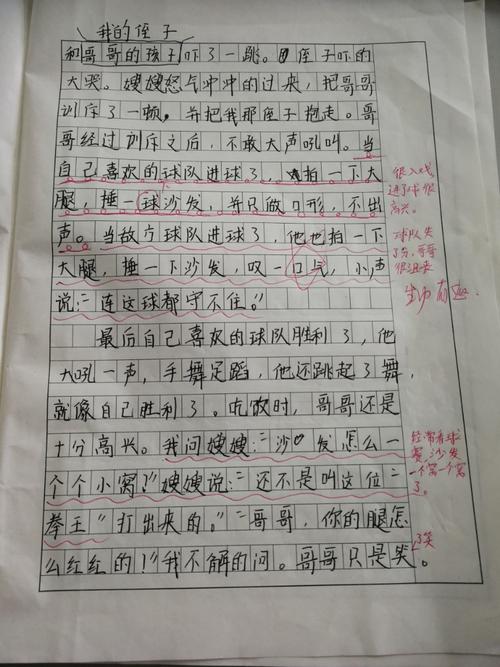 我的侄子
和哥哥的孩子吓了一跳。侄子吓的
大哭。嫂嫂怒气冲冲的过来，把哥哥
训斥了一顿，并把我那侄子抱走。哥
哥经过训斥之后，不敢大声吼叫。当
自己喜欢的球队进球了，拍一下大
腿，捶一球沙发，并只做口形，不出
声。当敌方球队进球了，他也拍一下
大腿，捶一下沙发，叹一口气，小声
说："连这球都守不住。"
最后自己喜欢的球队胜利了，他
大吼一声，手舞足蹈，他还跳起了舞，
就像自己胜利了。吃饭时，哥哥还是
十分高兴。我问嫂嫂："沙发怎么一
个个小窝？"嫂嫂说："还不是叫这位"
拳王"打出来的。""哥哥，你的腿怎
么红红的！"我不解的问。哥哥只是笑。
很入戏
进了球很
高兴。
球队失
了分，哥哥
很沮丧
生动有趣。
经常看球
赛，沙发
一个窝一个窝
了。